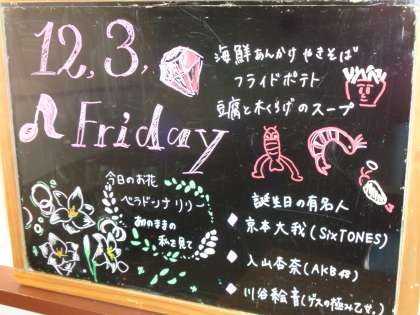 12,3,
Friday
海鮮あんかけやきそば
フライドポテト
豆腐と木くらげのスープ
今日のお花
ベラドンナリリー
ありのままの
私を見て
誕生日の有名人
京本大我(SixTONES)
入山杏奈(AKB48)
川谷絵音(ゲスの極み乙女。)